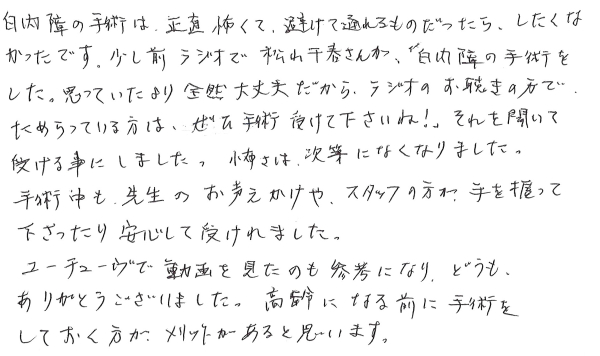 白内障の手術は、正直怖くて、避けて通れるものだったら、したくな
かったです。少し前ラジオで松山千春さんが、"白内障の手術を
した。思っていたより全然大丈夫だから、ラジオのお聴きの方で、
ためらっている方は、ぜひ手術受けて下さいね!」それを聞いて
受ける事にしました。怖さは、次第になくなりました。
手術中も、先生のお声えかけや、スタッフの方が、手を握って
下さったり安心して受けれました。
ユーチューヴで動画を見たのも参考になり、どうも、
ありがとうございました。高齢になる前に手術を
しておく方が、メリットがあると思います。